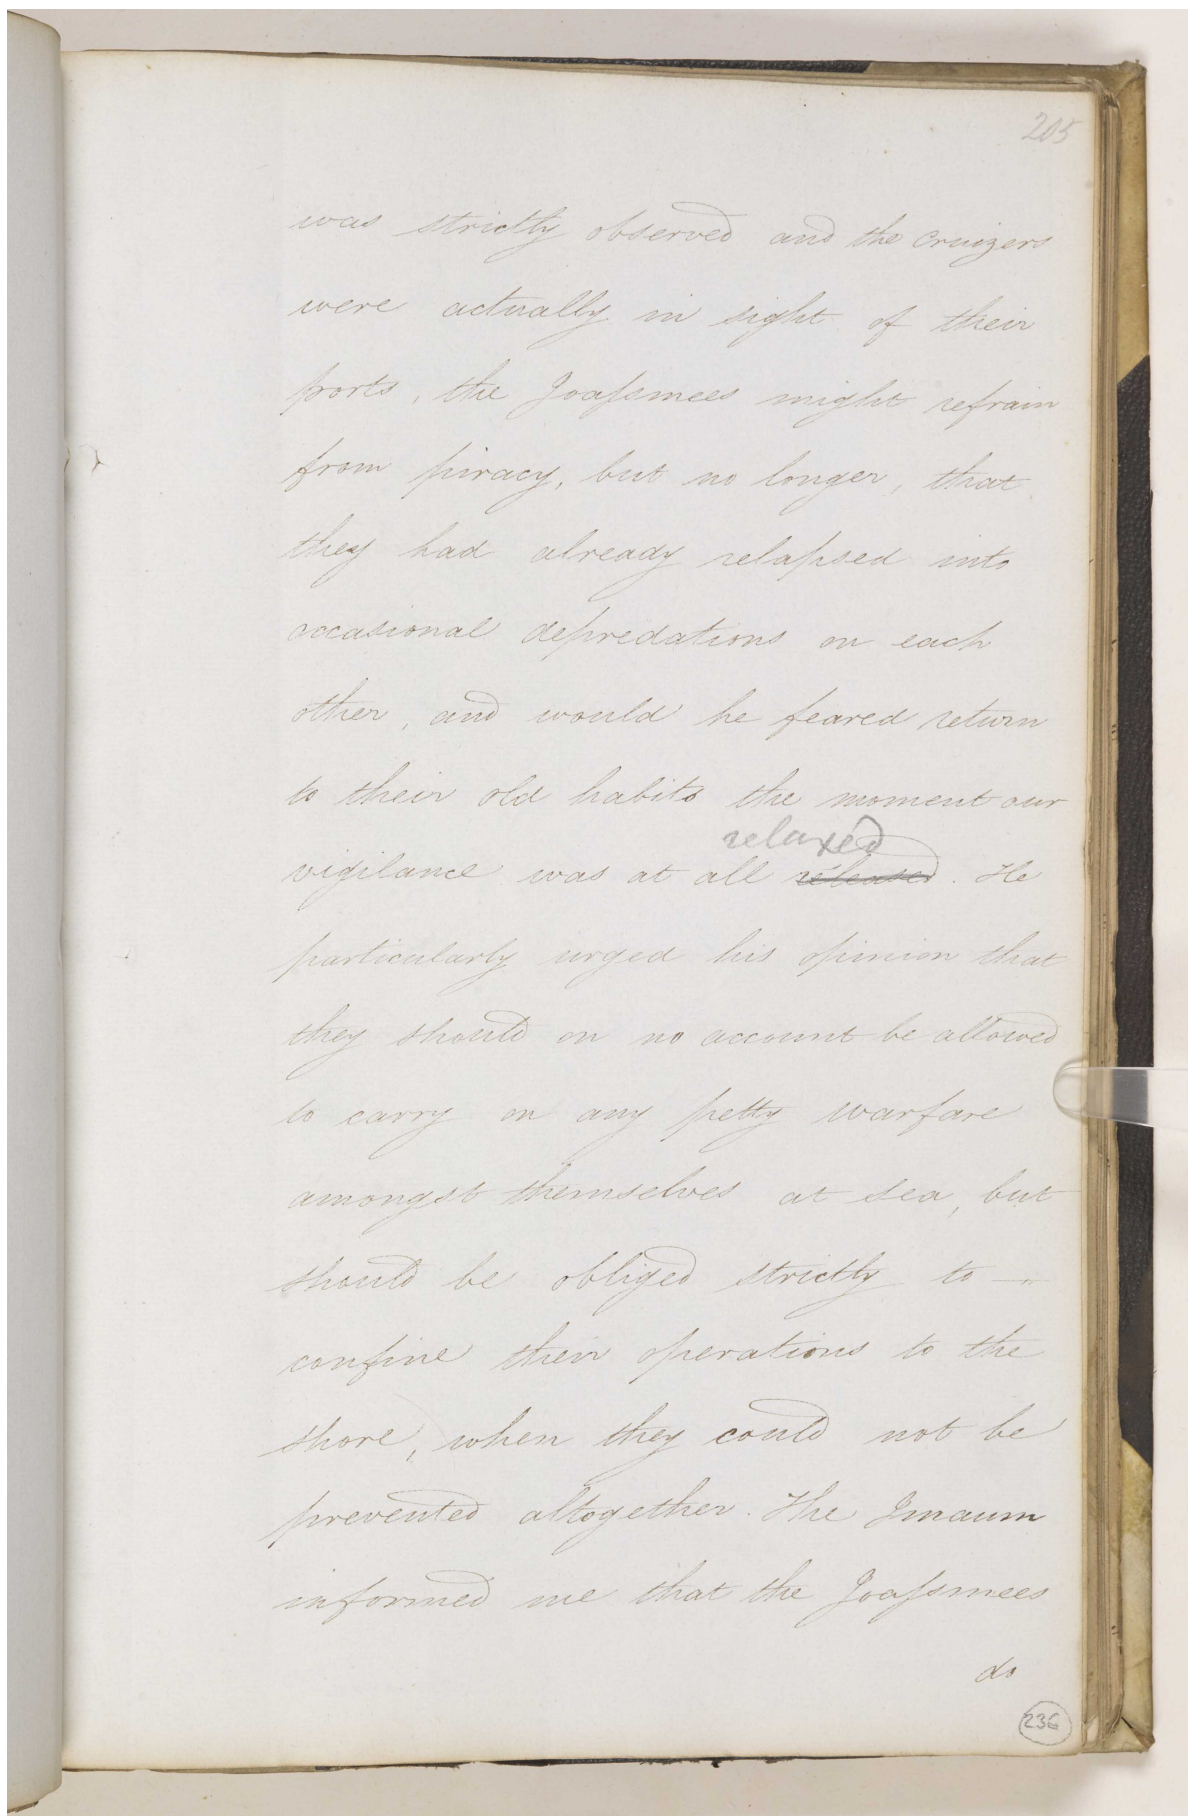 205
was strictly observed and the Cruizers
were actually in sight of their
ports, the Joassmees might refrain
from piracy, but no longer, that
they had already relapsed into
occasional depredations on each
other, and would he feared return
to their old habits the moment our
relaxed
vigilance was at all released. He
particularly urged his opinion that
they should on no account be allowed
to carry on any petty warfare
amongst themselves at sea, but
should be obliged strictly to
confine their operations to the
shore, when they could not be
prevented altogether. The Imaum
informed me that the Joassmees
do
236